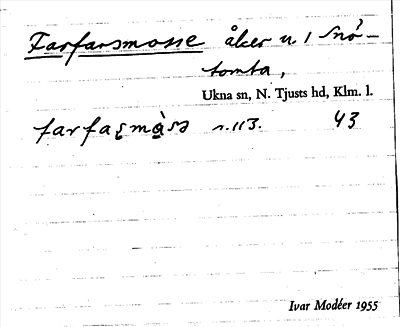 Farfarsmosse åker n 1 Snö-
tomta,
Ukna sn, N. Tjusts hd, Klm. l.
farfaʂmòsə n.113. 43
Ivar Modéer 1955